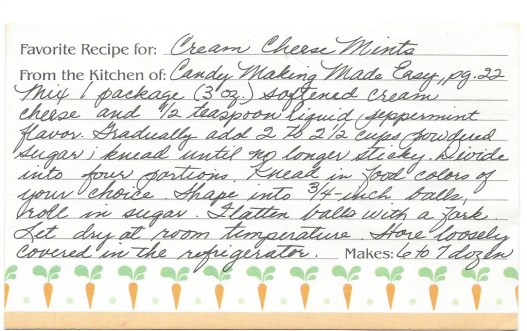 Favorite Recipe for: Cream Cheese Mints
From the Kitchen of: Candy Making Made Easy, pg. 22
Mix 1 package (3 oz.) softened cream
cheese and 1/2 teaspoon liquid peppermint
flavor. Gradually add 2 to 2 1/2 cups powdered
sugar; knead until no longer sticky. Divide
into four portions. Knead in food colors of
your choice. Shape into 3/4-inch balls,
roll in sugar. Flatten balls with a fork.
Let dry at room temperature. Store loosely
covered in the refrigerator. Makes: 6 to 7 dozen